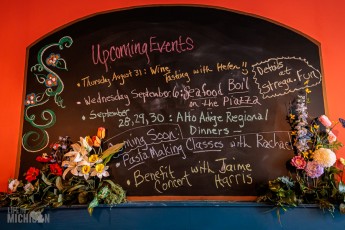 Upcoming Events
• Thursday August 31: Wine
Tasting with Helen!!
• Wednesday September 6: Seafood Boil
on the Piazza
Details
at
strega.fun
• September
28, 29, 30: Alto Adige Regional
Dinners
Coming Soon:
Pasta Making Classes with Rachael
• Benefit with Jaime
Concert Harris
LIFE IN
MICHIGAN